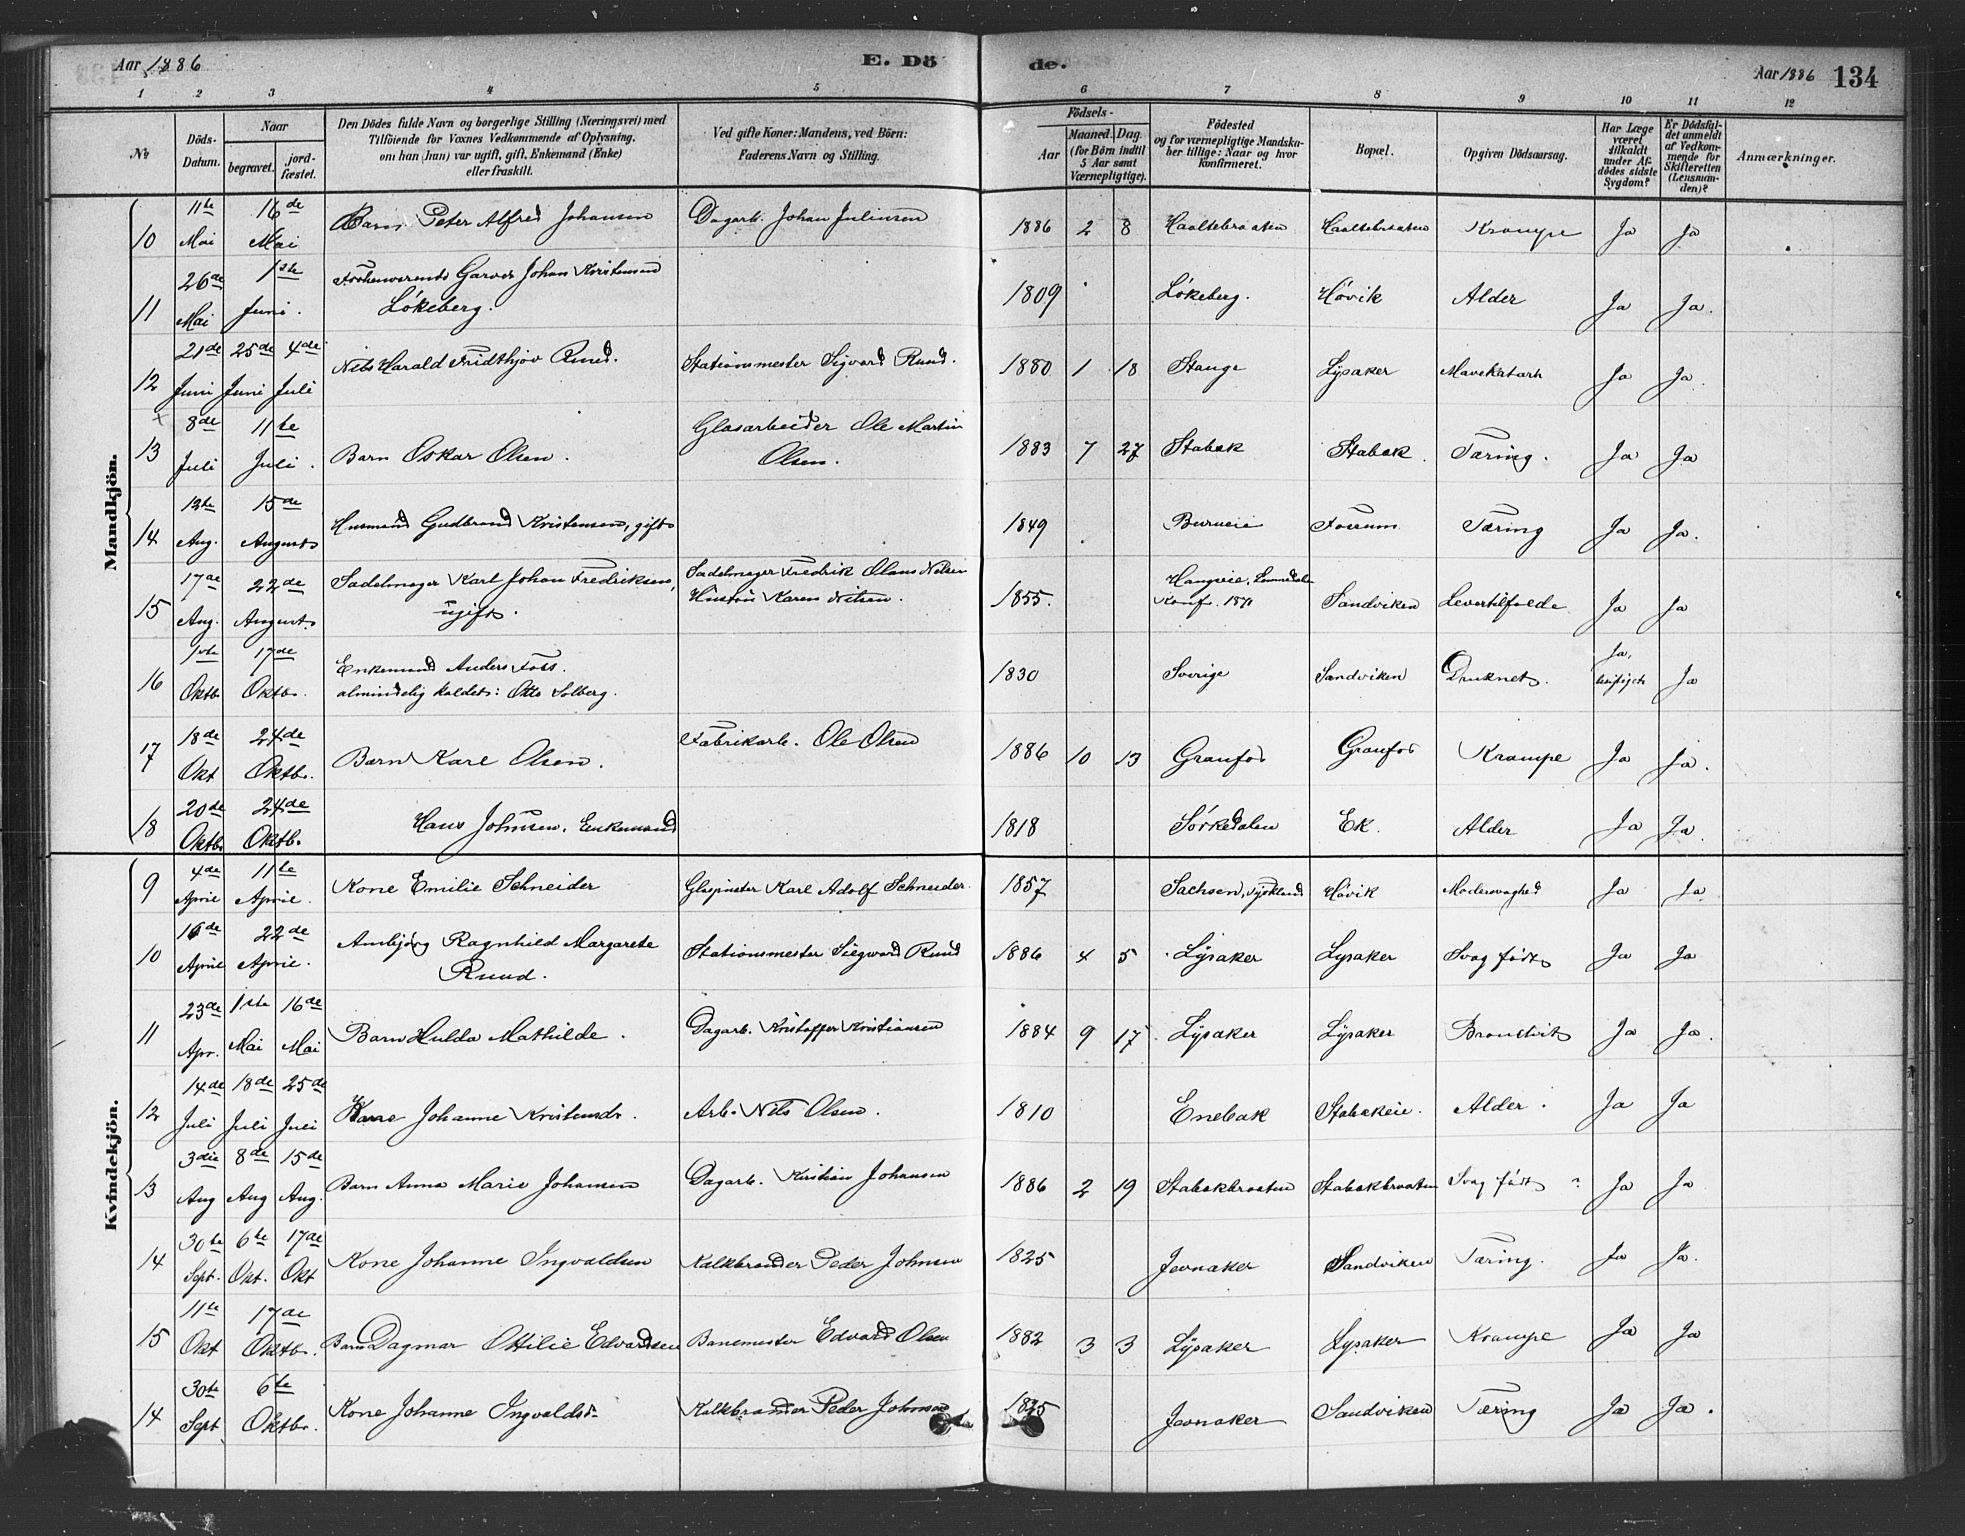 Aar 1886
E. Dö
de.
Aar 1886 134
1 2 3 4 5 6 7 8 9 10 11 12
No
Döds-Datum.
Naar
begravet.
jord-fæstet.
Den Dödes fulde Navn og borgerlige Stilling (Næringsvei) med
Tilföiende for Voxnes Vedkommende af Oplysning.
om han (hun) var ugift, gift, Enkemand (Enke)
eller fraskilt.
Ved gifte Koner: Mandens, ved Börn:
Faderens Navn og Stilling.
Födsels-
Aar
Maaned. Dag.
(for Börn indtil
5 Aar samt
Værnepligtige).
Födested
og for værnepligtige Mandska-
ber tillige: Naar og hvor
konfirmeret.
Bopæl.
Opgiven Dödsaarsag.
Har Læge
været
tilkaldt
under Af-
dödes sidste
Sygdom?
Er Dödsfal-
det anmeldt
af Vedkom-
mende for
Skifteretten
(Lensman-
den)?
Anmærkninger.
Mandkjön.
10 11te Mai 16de Mai Barn Peter Alfred Johansen Dagarb. Johan Juliussen 1886 2 8 Haaltebraaten Haaltebraaten Krampe Ja Ja
11 26de Mai 1ste Juni. Garver Johan Kristensen Lökeberg. 1809 Lökeberg. Hövik Alder Ja Ja.
12 21de Juni 25de Juni 4de Juli Nils Harald Fridthjov Ruud. Stationsmester Sigvard Ruud. 1880 1 18 Stange Lysaker Mavekatarh Ja Ja.
x
13 8de Juli 11te Juli. Barn Oskar Olsen. Glasarbeider Ole Martin Olsen. 1883 7 27 Stabæk Stabæk. Tæring. Ja Ja
14 12te Aug. 15de August Husmand Gudbrand Kristensen, gift 1849 Burueie Fossum Tæring Ja Ja.
15 17de Aug. 22de August. Sadelmager Karl Johan Fredriksen, ugift. Sadelmager Fredrik Olaus Nilsen Hustru Karen Nilsen. 1855. Konf. 1871 Sandviken Levertilfælde Ja Ja
16 1ste Oktb. 17de Oktb. Enkemand Anders Foss. almindelig kaldet: Otto Solberg. 1830 Sverige Sandviken Druknet. Ja, Ja
17 18de Okt 24de Oktb. Barn Karl Olsen. Fabrikarb. Ole Olsen 1886 10 13 Granfos Granfos Krampe Ja Ja.
18 20de Oktb. 24de Oktb. Hans Johnsen, Enkemand 1818 Sörkedalen Ek. Alder Ja Ja.
Kvindekjön.
9 4de April 11te April. Kone Emilie Schneider Glaspuster Karl Adolf Schneider. 1857 Sachsen, Tyskland Hövik Ja Ja.
10 16de April 22de April. Ambjörg Ragnhild Margarete Ruud. Stationsmester Siegward Ruud 1886 4 5 Lysaker Lysaker Svag födt Ja Ja
11 23de Apr. 1ste Mai 16de Mai Barn Hulda Mathilde. Dagarb. Kristoffer Kristiansen 1884 9 17 Lysaker Lysaker Ja Ja.
12 14de Juli 18de Juli 25de Juli Johanne Kristensdr. Arb. Nils Olsen. 1810 Enebak Stabækeie. Alder. Ja Ja
13 3die Aug 8de Aug 15de Aug. Barn Anna Marie Johansen Dagarb. Kristian Johansen 1886 2 19 Stabækbraaten Stabækbraaten Svag födt ? Ja Ja
14 30te Sept. 6te Okt. 17de Okt Kone Johanne Ingvaldsen Kalkbrænder Peder Johnsen 1825 Jevnaker Sandviken Tæring. Ja Ja.
15 11te Okt 17de Oktb. Barn Dagmar Ottilie Edvardsen Banemester Edvard Olsen 1882 3 3 Lysaker Lysaker Krampe Ja Ja
14 30te Sept 6te Oktb. Kone Johanne Ingvaldsdr. Kalkbrænder Peder Johnsen 1825 Jevnaker Sandviken Tæring Ja Ja.